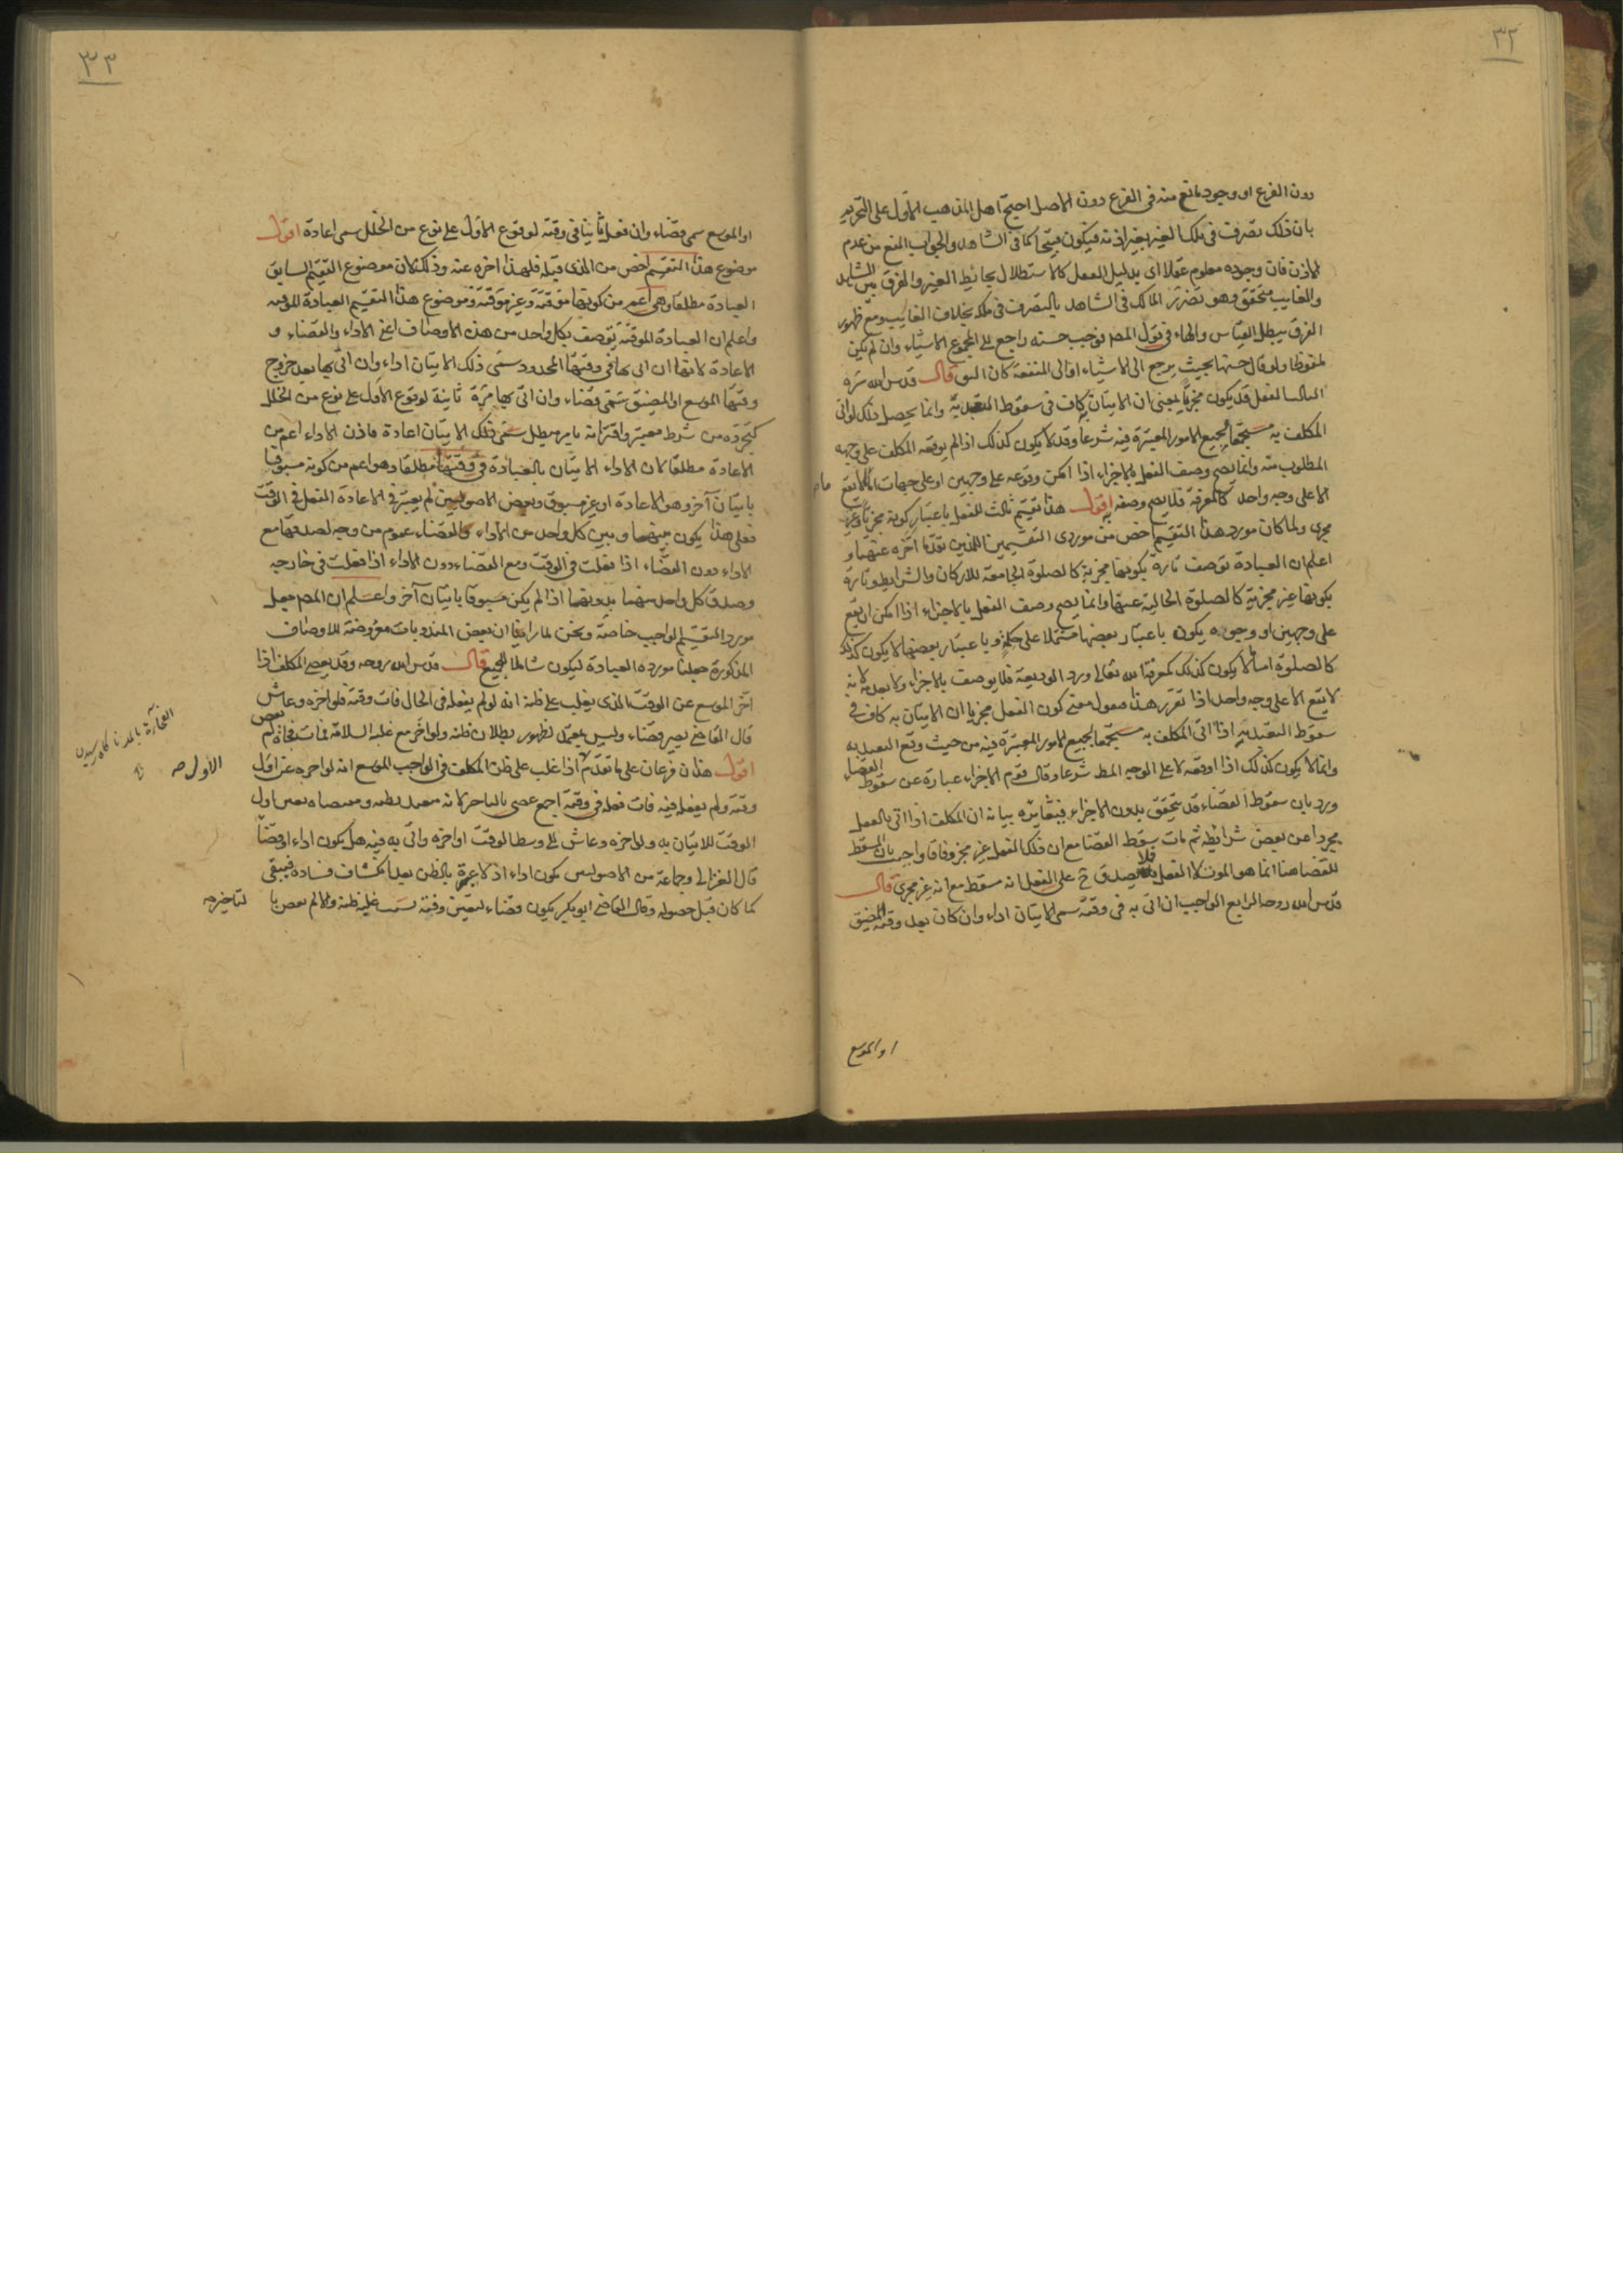 ٣٢
دون الفرع او وجود مانع منه فى الفرع دون الاصل احتج اهل المذهب الاول على التحريم
بان ذلك تصرف فى ملك الغير بغير اذنه فيكون قبيحا كما فى الشاهد والجواب المنع من عدم
الاذن فان وجوده معلوم عقلا اى بدليل العقل كالاستظلال بحائط الغير والفرق بين الشاهد
والغايب متحقق وهو تضرر المالك فى الشاهد بالتصرف فى ملكه بخلاف الغايب ومع ظهور
الفرق يبطل القياس والهاء فى قول المصه فوجب حسنه راجع الى مجموع الاشياء وان لم يكن
ملفوظا ولو قال حسنها بحيث يرجع الى الاشياء او الى المنفعة كان اليق قال قدس الله سره
الثالث الفعل قد يكون مجزيا بمعنى ان الاتيان به كاف فى سقوط التعبد به وانما يحصل ذلك لو اتى
المكلف به مستجمعا لجميع الامور المعتبرة فيه شرعا وقد لا يكون كذلك اذا لم يوقعه المكلف على وجهه
المطلوب منه وانما يصح وصف الفعل بالاجزاء اذا امكن وقوعه على وجهين او على جهات اما ما لا يقع
الا على وجه واحد كالمعرفة فلا يصح وصفه به اقول هذا تقسيم ثالث للفعل باعتبار كونه مجزيا وغير
مجزى ولما كان مورد هذا التقسيم اخص من موردى التقسيمين اللذين تقدما اخره عنهما و
اعلم ان العبادة توصف تارة بكونها مجزية كالصلوة الجامعة للاركان والشرايط وتارة
بكونها غير مجزية كالصلوة الخالية عنها وانما يصح وصف الفعل بالاجزاء اذا امكن ان يقع
على وجهين او وجوه يكون باعتبار بعضها مشتملا على حكمه وباعتبار بعضها لا يكون كذلك
كالصلوة اما ما لا يكون كذلك كمعرفة الله تعالى ورد الوديعة فلا يوصف بالاجزاء ولا بعدمه لانه
لا تقع الا على وجه واحد اذا تقرر هذا فنقول معنى كون الفعل مجزيا ان الاتيان به كاف فى
سقوط التعبد به اذا اتى المكلف به مستجمعا لجميع الامور المعتبرة فيه من حيث وقع التعبد به
وانما لا يكون كذلك اذا اوقعه لا على الوجه المط شرعا وقال قوم الاجزاء عبارة عن سقوط القضاء
ورد بان سقوط القضاء قد يتحقق بدون الاجزاء فيتغايره بيانه ان المكلف اذا اتى بالفعل
مجردا عن بعض شرائطه ثم مات سقط القضا مع ان ذلك الفعل غير مجز وفاقا واجيب بان المسقط
للقضا هنا انما هو الموت لا الفعل فلا يصدق ح على الفعل انه مسقط مع انه غير مجزى قال
قدس الله روحه الرابع الواجب ان اتى به فى وقته سمى الاتيان اداء وان كان بعد وقته المضيق
او الموسع
٣٣
او الموسع سمى قضاء وان فعل ثانيا فى وقته لوقوع الاول على نوع من الخلل سمى اعادة اقول
موضوع هذا التقسيم اخص من الذى قبله فلهذا اخره عنه وذلك لان موضوع التقسيم السابق
العبادة مطلقا وهى اعم من كونها موقتة وغير موقتة وموضوع هذا التقسيم العبادة الموقتة
واعلم ان العبادة الموقتة توصف بكل واحد من هذه الاوصاف اعنى الاداء والقضاء و
الاعادة لانها ان اتى بها فى وقتها المحدود سمى ذلك الاتيان اداء وان اتى بها بعد خروج
وقتها الموسع او المضيق سمى قضاء وان اتى بها مرة ثانية لوقوع الاول على نوع من الخلل
كتجرده من شرط معتبر او اقترانه بامر مبطل سمى ذلك الاتيان اعادة فاذن الاداء اعم من
الاعادة مطلقا لان الاداء الاتيان بالعبادة فى وقتها مطلقا وهو اعم من كونه مسبوقا
باتيان آخر وهو الاعادة او غير مسبوق وبعض الاصوليين لم يعتبر فى الاعادة الفعل فى الوقت
فعلى هذا يكون بينها وبين كل واحد من الاداء والقضاء عموم من وجه لصدقها مع
الاداء دون القضاء اذا فعلت فى الوقت ومع القضاء دون الاداء اذا فعلت فى خارجه
وصدق كل واحد منهما بدونها اذا لم يكن مسبوقا باتيان آخر واعلم ان المصه جعل
مورد التقسيم الواجب خاصة ونحن لما راينا ان بعض المندوبات معروضة للاوصاف
المذكورة جعلنا مورده العبادة ليكون شاملا للجميع قال قدس الله روحه وقد يعصى المكلف اذا
اخر الموسع عن الوقت الذى يغلب على ظنه انه لو لم يفعله فى الحال فات وقته فلو اخره وعاش
قال القاضى يصير قضاء وليس بمعتمد لظهور بطلان ظنه ولو اخر مع غلبة السلامة فمات فجاة لم يعص
اقول هذان فرعان على ما تقدم الاول اذا غلب على ظن المكلف فى الواجب الموسع انه لو اخره عن اول
وقته ولم يفعله فيه فات فعله فى وقته اجمع عصى بالتاخير لانه متعبد بظنه
الوقت للاتيان به ولو اخره وعاش الى وسط الوقت او اخره واتى به فيه هل يكون اداء او قضاء
قال الغزالى وجماعة من الاصوليين يكون اداء اذ لا عبرة بالظن بعد انكشاف فساده فيبقى
كما كان قبل حصوله وقال القاضى ابو بكر يكون قضاء لتعين وقته بسبب غلبة ظنه ولهذا لم يعص بتاخيره
الاول صه